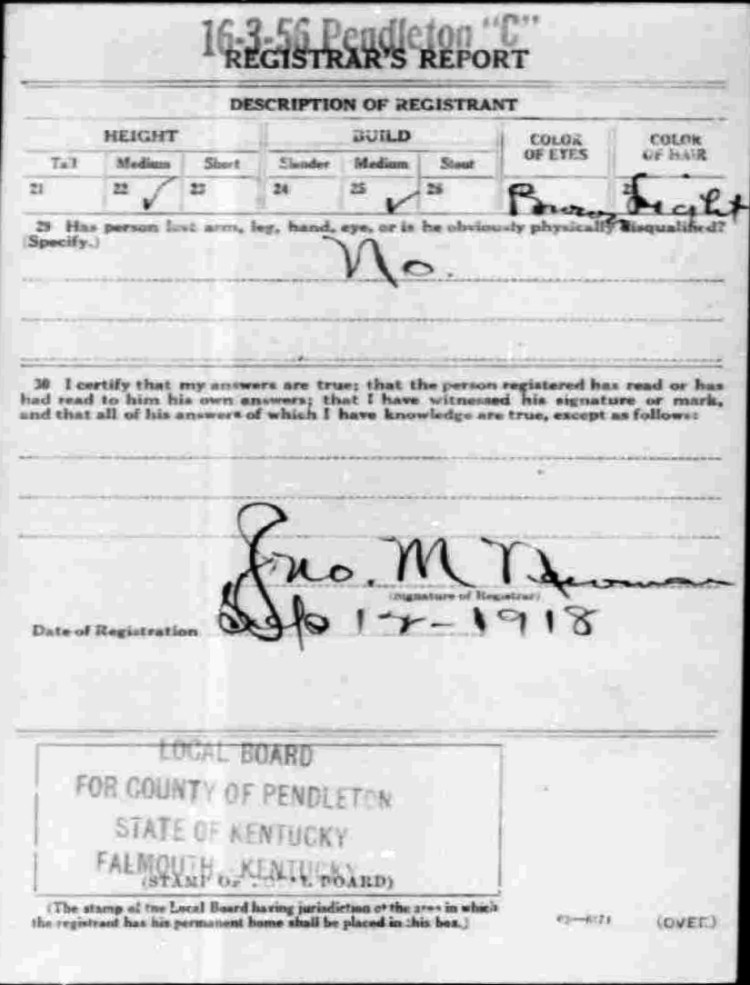 16-3-56 Pendleton "C"
REGISTRAR'S REPORT
DESCRIPTION OF REGISTRANT
HEIGHT BUILD COLOR OF EYES COLOR OF HAIR
Tall Medium Short Slender Medium Stout
21 22 ✓ 23 24 25 ✓ 26 Brown Light
29 Has person lost arm, leg, hand, eye, or is he obviously physically disqualified?
(Specify.)
No.
30 I certify that my answers are true; that the person registered has read or has
had read to him his own answers; that I have witnessed his signature or mark,
and that all of his answers of which I have knowledge are true, except as follows:
Jno. M Newman
(Signature of Registrar)
Date of Registration Sep 12-1918
LOCAL BOARD
FOR COUNTY OF PENDLETON
STATE OF KENTUCKY
FALMOUTH, KENTUCKY
(STAMP OF LOCAL BOARD)
(The stamp of the Local Board having jurisdiction of the area in which
the registrant has his permanent home shall be placed in this box.)
(OVER)